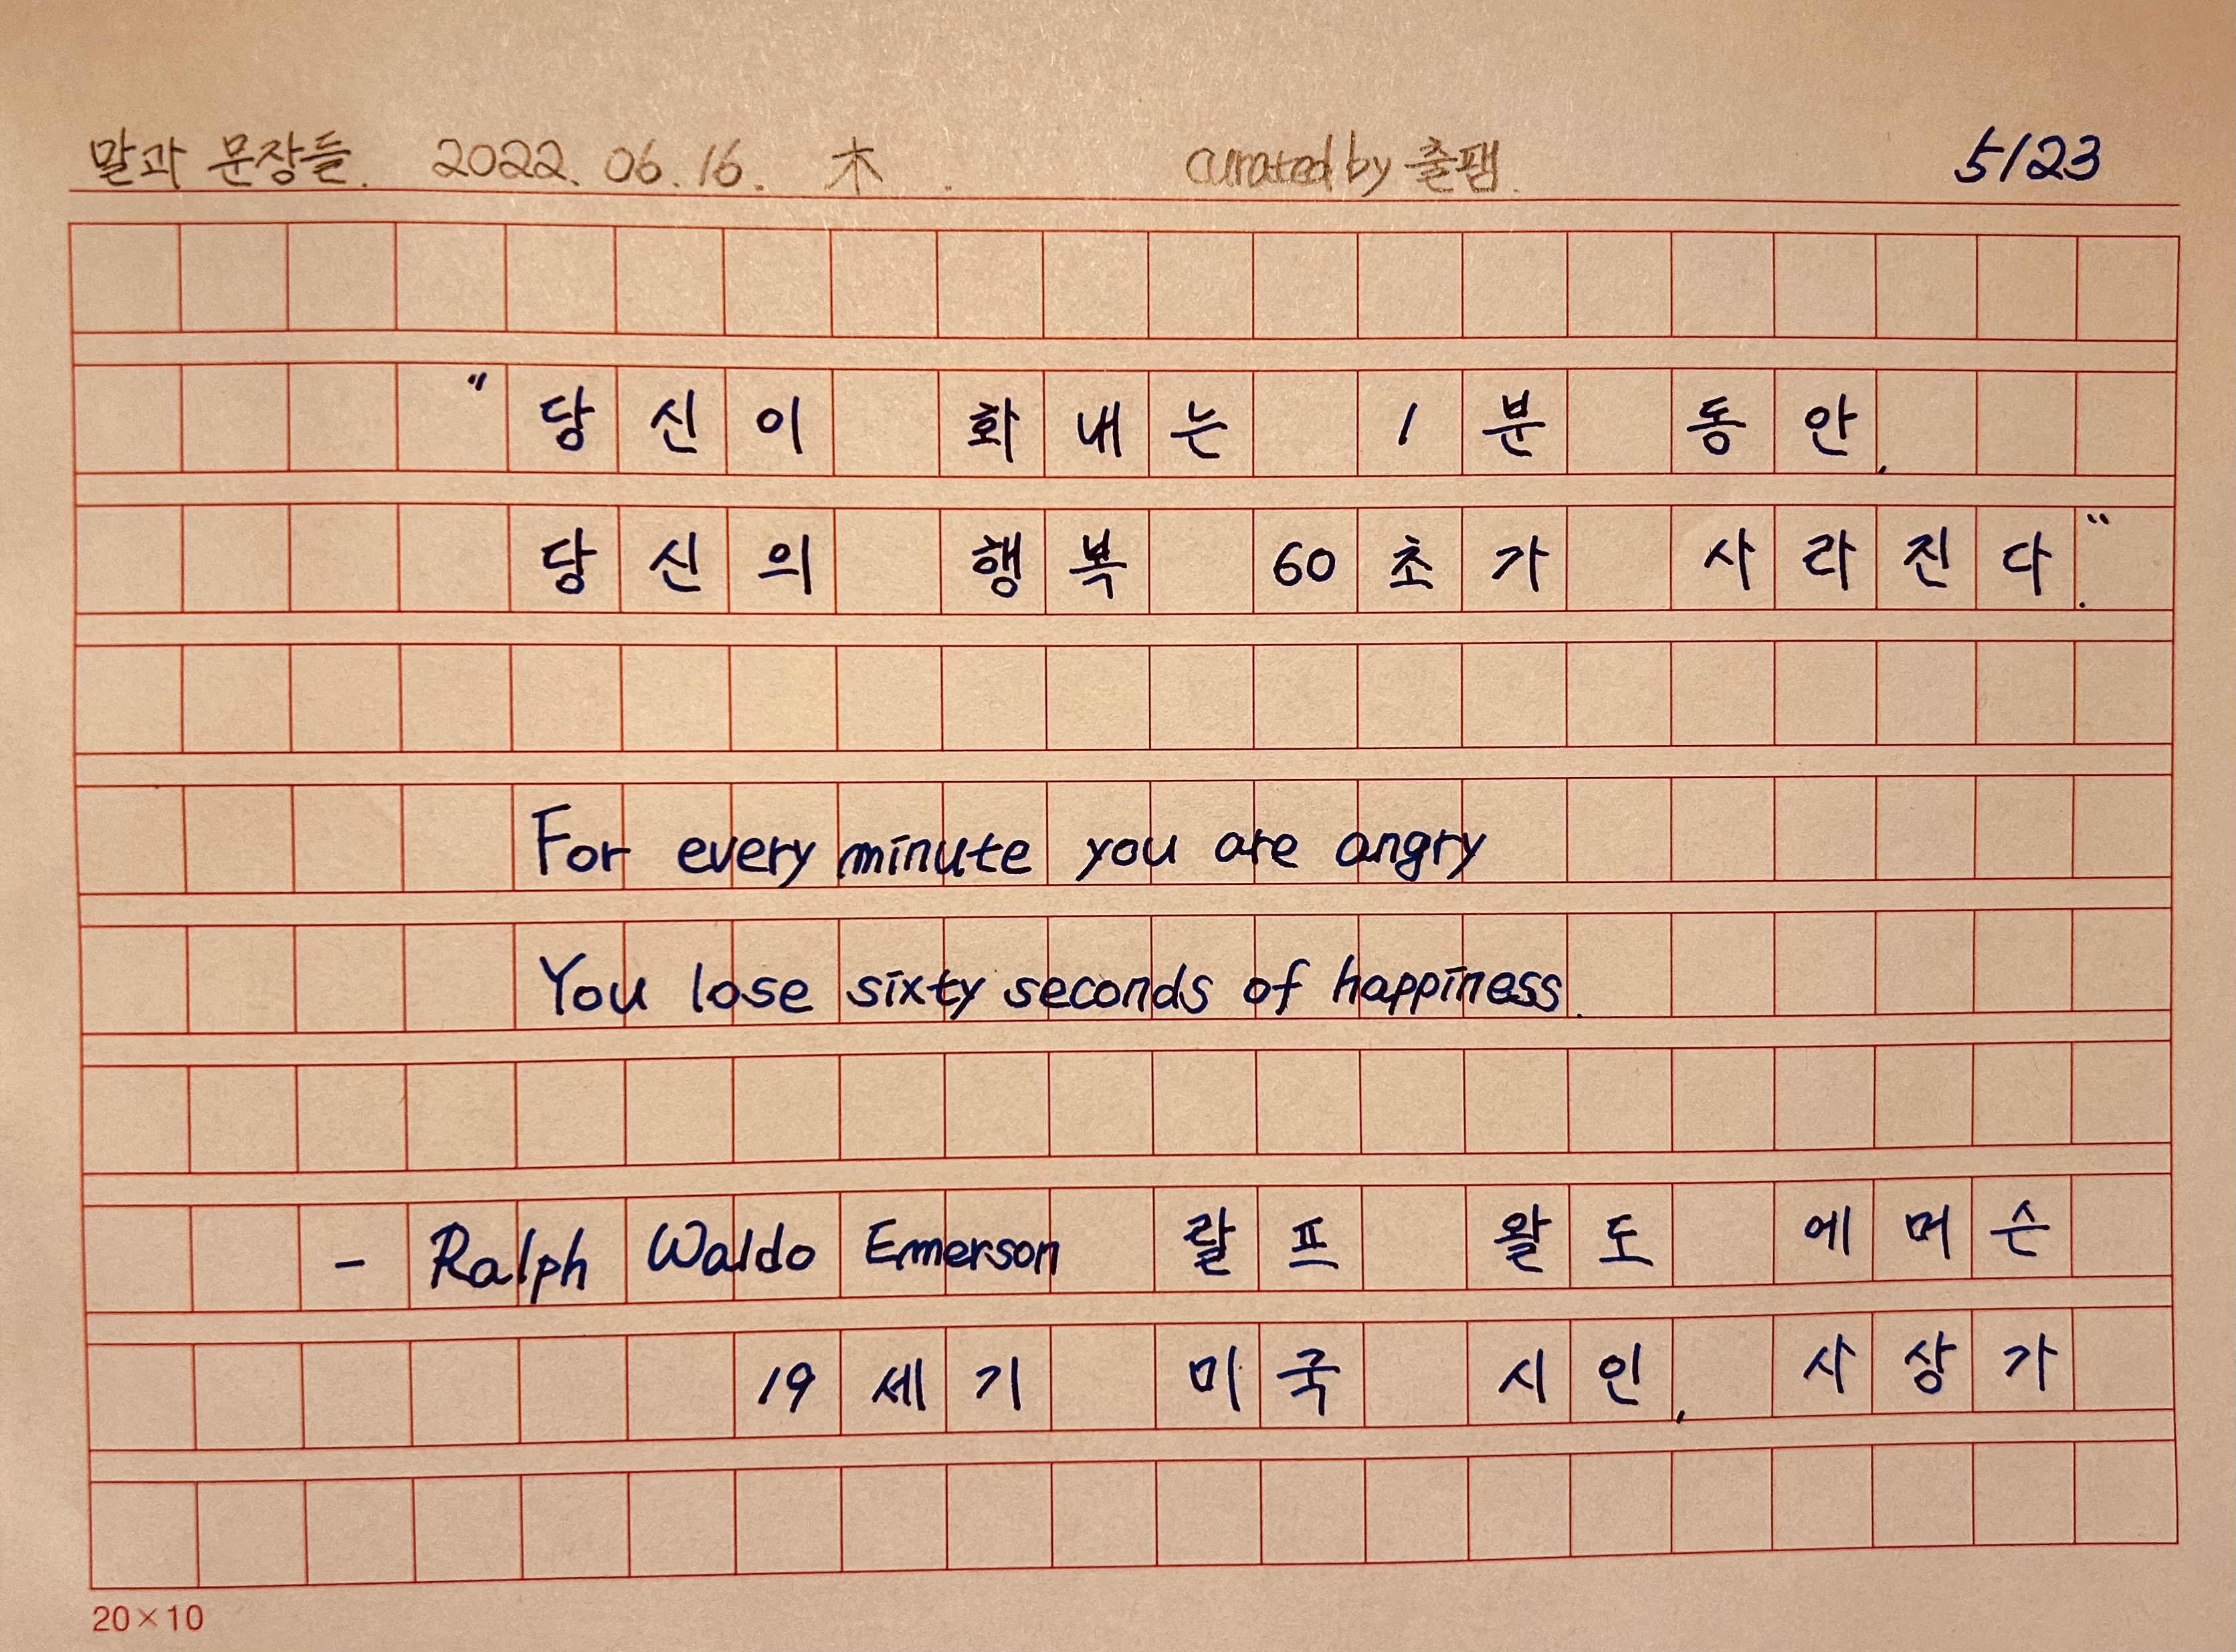 말과 문장들. 2022. 06. 16. 木. curated by 출팸. 5/23
"당신이 화내는 1분 동안,
당신의 행복 60초가 사라진다."
For every minute you are angry
You lose sixty seconds of happiness.
- Ralph Waldo Emerson 랄프 왈도 에머슨
19세기 미국 시인, 사상가
20×10